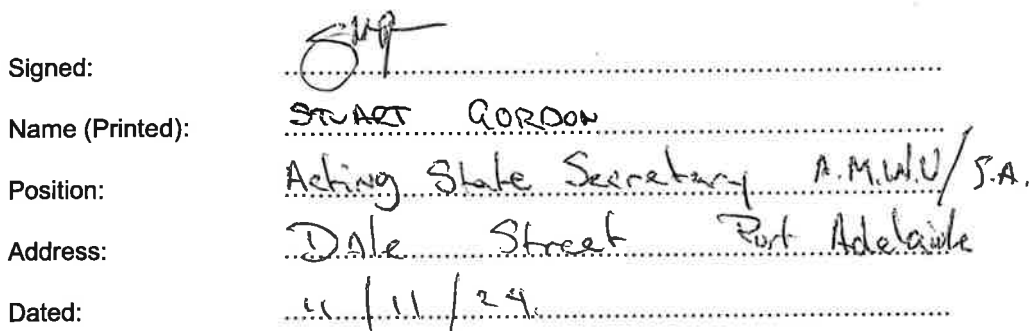 Signed:
Name (Printed): STUART GORDON
Position: Acting State Secretary A.M.W.U/S.A.
Address: Dale Street Port Adelaide
Dated: 11/11/24.